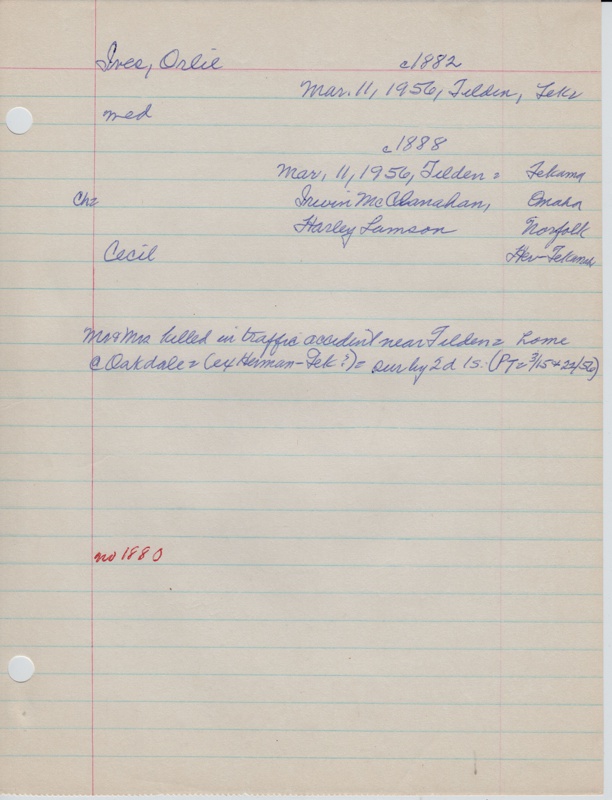 Ives, Orlie c1882
Mar. 11, 1956, Tilden, Tek=
med
c1888
Mar, 11, 1956, Tilden = Tekama
Ch= Irwin McClanahan, Omaha
Harley Lamson Norfolk
Cecil Her-Tekamah
Mr & Mrs killed in traffic accident near Tilden = home
c Oakdale = (ex Herman-Tek?) = sur by 2d 1s. (PT = 3/15 + 22/56)
no 1880